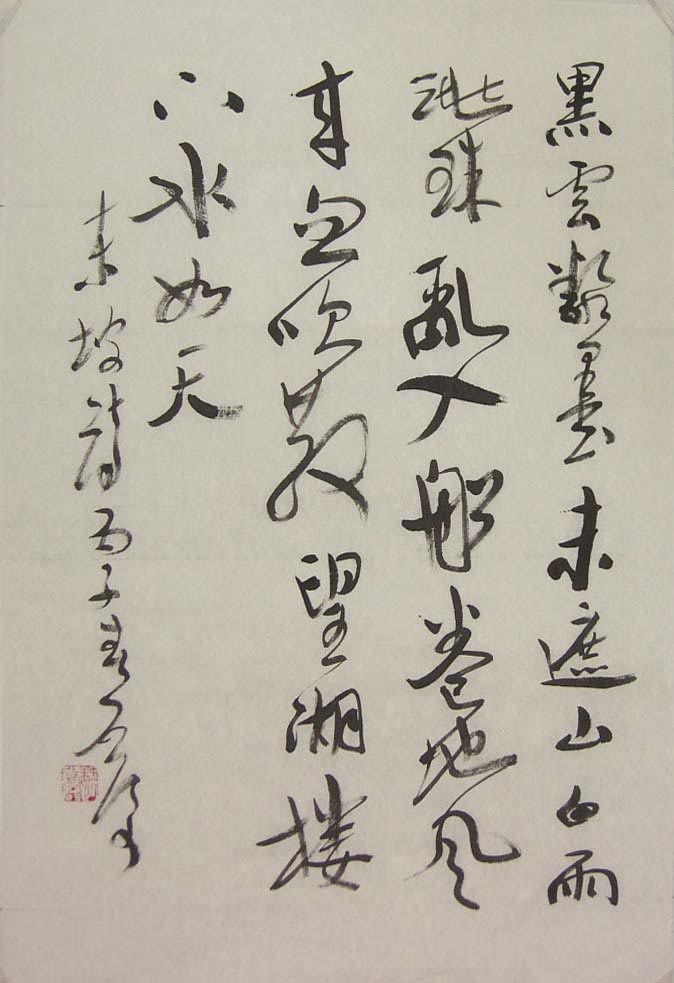 黑雲翻墨未遮山白雨
跳珠亂入船卷地風
來忽吹散望湖樓
下水如天
東坡詩丙子春